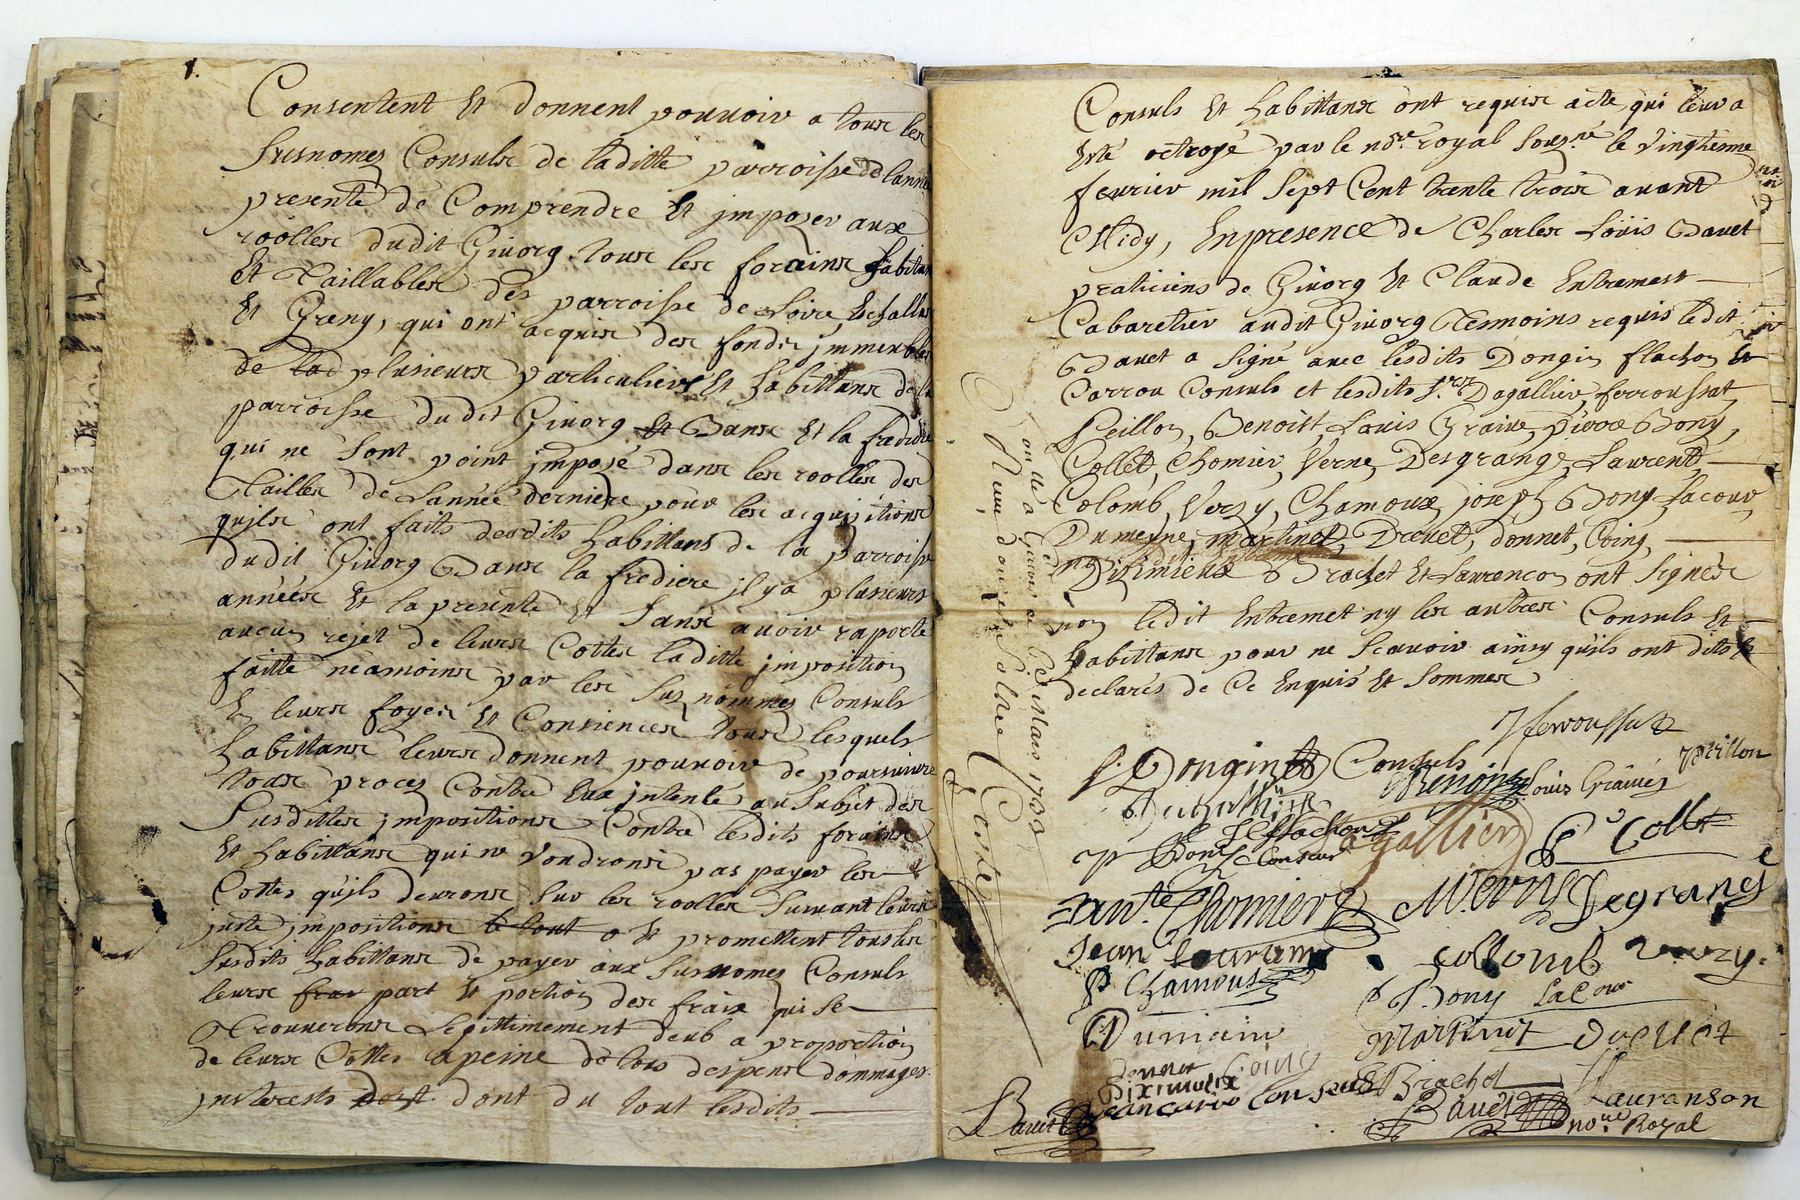 1.
Consentent Et donnent pouuoir a tous les
susnomez Consuls de laditte parroisse de lanné
presente de Comprendre Et jmposer aux
roolles dudit Giuorg tous les forains habitans
Et Taillables des parroisse de Loire Echallas
Et Greny, qui ont acquis des fonds jmmeubles
de plusieurs particuliers Et habittans de la
parroisse dudit Giuorg Et Bans Et la fredière
qui ne sont point jmposé dans les roolles des
Tailles de Lannée derniere pour les acquisitions
quils ont faits desdits habittans de la parroisse
dudit Giuorg Bans la frediere il y a plusieurs
années Et la presente Et sans auoir raporté
aucun rejet de leurs Cottes laditte jmposition
faitte néamoins par les susnommez Consuls
En leurs foyer Et Consiences tous lesquels
habittans leurs donnent pouuoir de poursuiure
tous procez Contre Eux jntenté au subjet des
susdittes jmpositions Contre lesdits forains
Et habittans qui ne voudrons pas payer les
Cottes quils deurons sur les roolles suiuant leurs
juste jmpositions le tout o Et promettent tous les
susdits habittans de payer aux susnomez Consuls
leurs frav part Et portion des fraix qui se
trouuerons Legittimement deub a proportion
de leurs Cottes a peine de tous despens dommages
jnterests dont du tout lesdits
Consuls Et habittans ont requis acte, qui leur a
Esté octroyé par le nore. royal sousné. le vingtieme
feurier mil sept Cent trente trois auant
Midy, En presence de Charles Loüis Bauet
praticiens de Giuorg Et Claude Entremest
Cabaretier audit Giuorg Tesmoins requis ledit
Bauet a signé auec lesdits Dongin, flachon Et
Carron Consuls et lesdits srs. Dagallier, ferroussat,
Peillon, Benoist, Louis Graine, Pierre Bony,
Collet, Chomier, Verne, Desgrange, Laurent,
Colomb, Versy, Chamoux, joseph Bony Lacour,
Dumeyne, martinet, Dreuet, donnet, Coing,
Disimieux Brachet Et Laurençon ont signés
non ledit Entremet ny les autres Consuls Et
habittans pour ne scauoir ainsy quils ont dits Et
declarés de Ce Enquis Et sommes
Conllé a Giuors le Mars 1733
Reçu douze sols
ferroussat
Dongin Consuls
Benoist Louis Graine Peillon
flachon Dagallier P. Collet
P Bony Consul
Ante. Chomier M. Verny Degrange
Jean Lauran Collomb Verzy.
P Chamous Bony Lacour
Dumain Martinit Dreuet
donnet Coing
Diximieux Brachet Lauranson
Jean Carron Consul
Bauet Bauet nore Royal